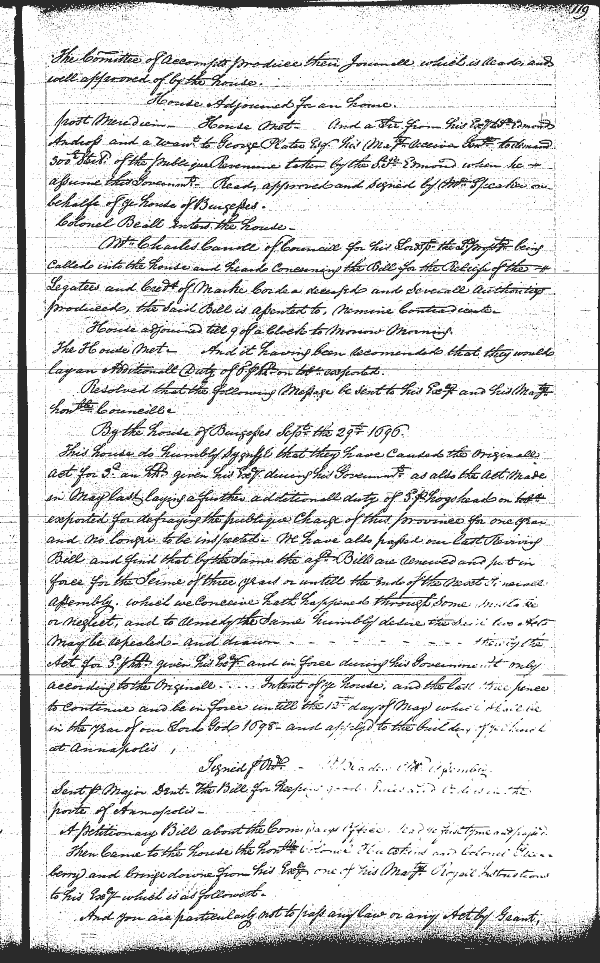 119
The Comittee of Accompts produce their Journall which is Read, and
well approved of by the house.
House Adjourned for an hour.
post Meridiem House Met And a Ltr. from his Exy Sr. Edmond
Andross and a Warrt. to George Plater Esqr. his Majty
300 Sterl. of the publique Revenue taken by the Sd. Sr. Edmond when he
assume this Governmt. Read, approved and signed by Mr. Speaker on
behalfe of ye house of Burgesses.
Colonel Beall enters the house
Mr. Charles Carroll of Councill for his being
called into the house and heard Concerning the Bill for the Reliefe of the
Legatees and Credrs. of Marke Cordea deceased and Severall Authorityes
produced, the said Bill is assented to, Nemine Contradicente.
House adjourned till 9 of a Clock to Morrow Morning.
The House Met And it having been recomended that they would
lay an Additionall Duty of 3d. p hhd. on tobo. exported.
Resolved that the following Message be sent to his Exy and his Majtys
honble Councill
By the house of Burgesses Septr. the 29th 1696.
This house do humbly Signifye that they have Caused the Originall
act for 3d. an hhd. given his Exy. during his Governmt. as also the Act Made
in May last laying a further additionall duty of 3d. p hogshead on tobo.
exported for defraying the publique Charge of this province for one year
and no longer to be inspected. We have also passed our last Reviving
Bill and find that by the Same the afd. Bills are renewed and put in
force for the Terme of three years or untill the End of the Next Generall
Assembly. which we Conceive hath happened through Some mistake
or Neglect, and to remedy the Same humbly desire the said two acts
may be repealed and drawn
Act for 3d. p hhd. given his Exy. and in force during his Government only
according to the Originall . . . . . Intent of ye house, and the last three pence
to Continue and be in force untill the 12th day of May which shall be
in the year of our Lord God 1698 and applyd to the building of ye Church
at Annapolis
Signed p Ordr.
Sent p Major Dent. The Bill for keeping good Rules and Orders in the
porte of Annapolis
A petitionary Bill about the Read ye first tyme and passd.
Then Came to the house the honble Colonel and Colonel
and brings downe from his Exy. one of his Majtys Royall Instructions
to his Exy. which is as followeth
And you are particularly not to pass any law or any Act by Grant,